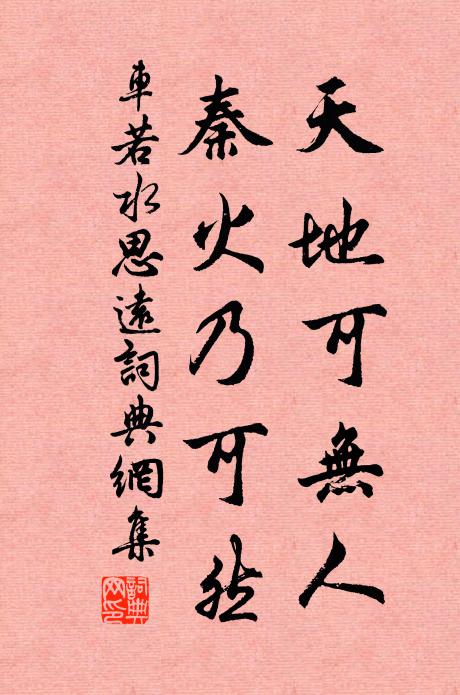 天地可無人
秦火乃可然
車若水思遠詞典網集
詞典网印